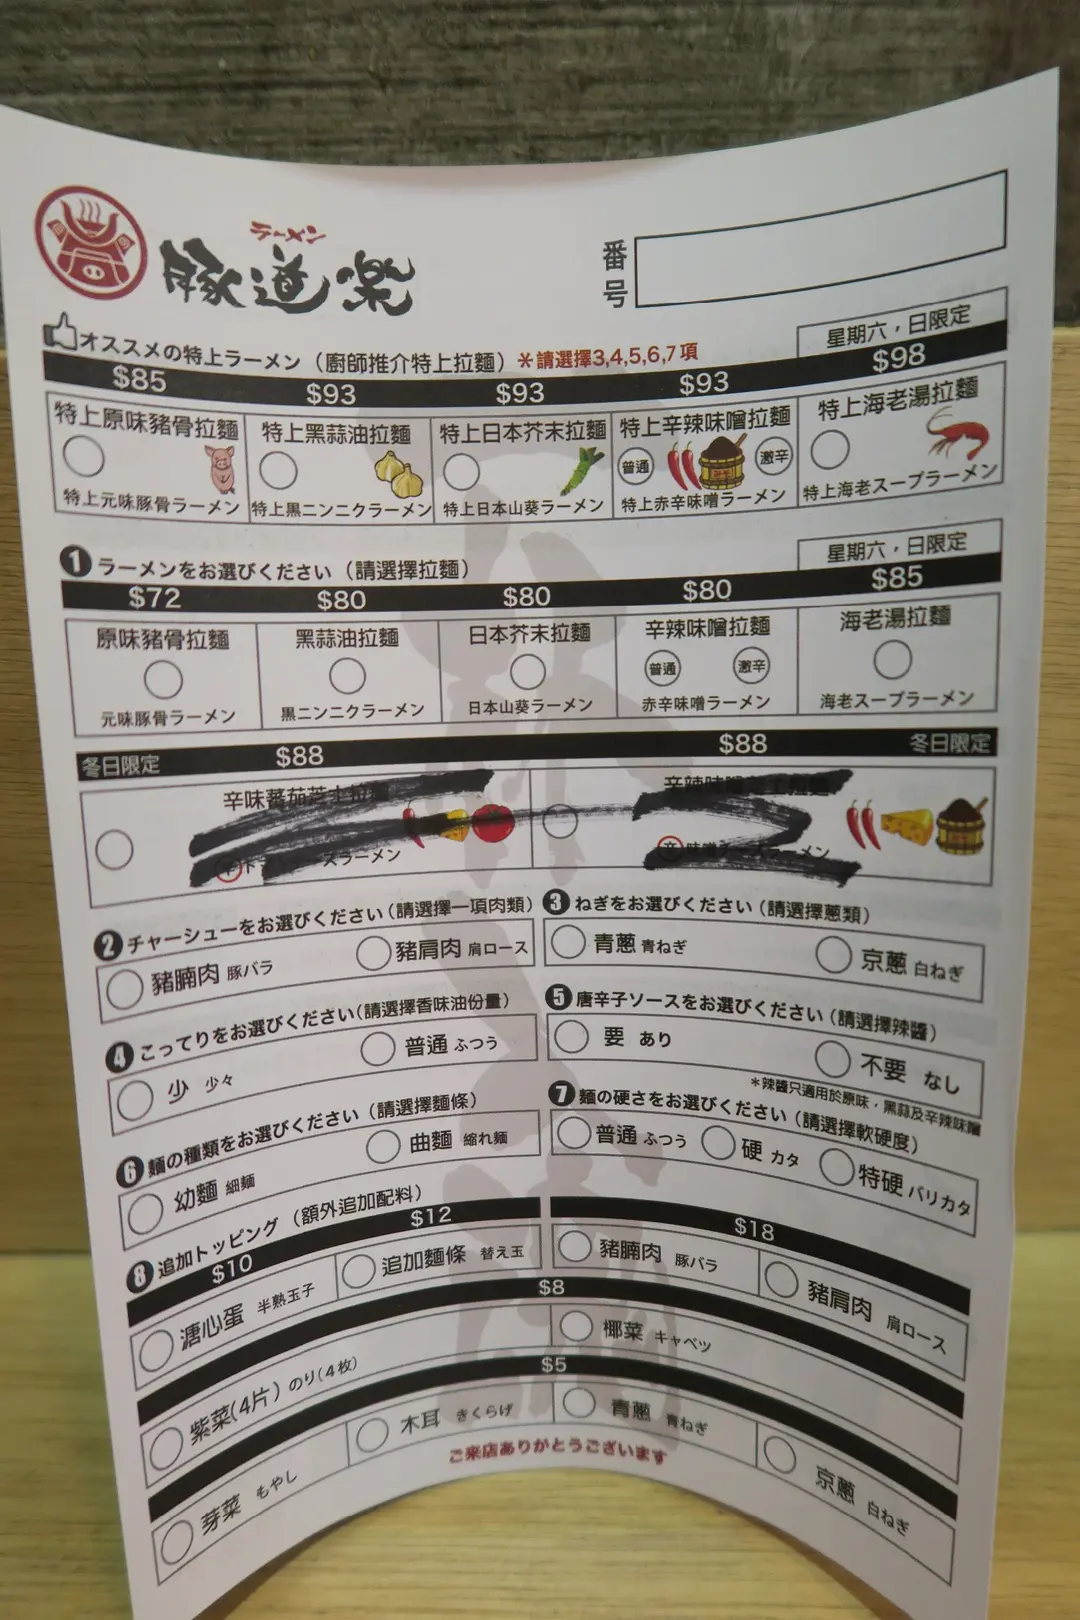 ラーメン
豚道楽
番号
オススメの特上ラーメン（廚師推介特上拉麵）＊請選擇3,4,5,6,7項
星期六，日限定
$85 $93 $93 $93 $98
特上原味豬骨拉麵 特上黑蒜油拉麵 特上日本芥末拉麵 特上辛辣味噌拉麵 特上海老湯拉麵
普通 激辛
特上元味豚骨ラーメン 特上黒ニンニクラーメン 特上日本山葵ラーメン 特上赤辛味噌ラーメン 特上海老スープラーメン
1 ラーメンをお選びください（請選擇拉麵）
星期六，日限定
$72 $80 $80 $80 $85
原味豬骨拉麵 黑蒜油拉麵 日本芥末拉麵 辛辣味噌拉麵 海老湯拉麵
普通 激辛
元味豚骨ラーメン 黒ニンニクラーメン 日本山葵ラーメン 赤辛味噌ラーメン 海老スープラーメン
冬日限定 $88 $88 冬日限定
辛味蕃茄芝士拉麵
辛 ラーメン
2 チャーシューをお選びください（請選擇一項肉類）
豬腩肉 豚バラ 豬肩肉 肩ロース
3 ねぎをお選びください（請選擇蔥類）
青蔥 青ねぎ 京蔥 白ねぎ
4 こってりをお選びください（請選擇香味油份量）
少 少々 普通 ふつう
5 唐辛子ソースをお選びください（請選擇辣醬）
要 あり 不要 なし
＊辣醬只適用於原味，黑蒜及辛辣味噌
6 麺の種類をお選びください（請選擇麵條）
幼麵 細麺 曲麵 縮れ麺
7 麺の硬さをお選びください（請選擇軟硬度）
普通 ふつう 硬 カタ 特硬 バリカタ
8 追加トッピング（額外追加配料）
$10 $12 $18
溏心蛋 半熟玉子 追加麵條 替え玉 豬腩肉 豚バラ 豬肩肉 肩ロース
$8
紫菜(4片) のり(4枚) 椰菜 キャベツ
$5
芽菜 もやし 木耳 きくらげ 青蔥 青ねぎ 京蔥 白ねぎ
ご来店ありがとうございます